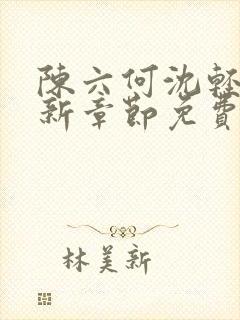 陳六何沈輕
新章節免費
林美新